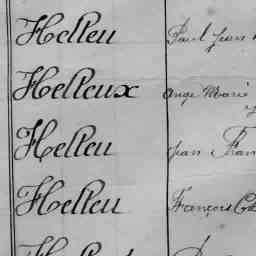 Helleu Paul Jean
Helleux Ange Marie
Helleu Jean Fran
Helleu François